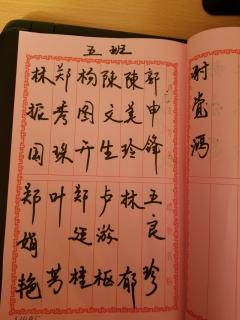 五班
林振国
郑秀珠
杨图开
陈文生
陈美玲
郭申锋
郑娟艳
叶芳
郑廷桂
卢游枢
林郁
王良珍